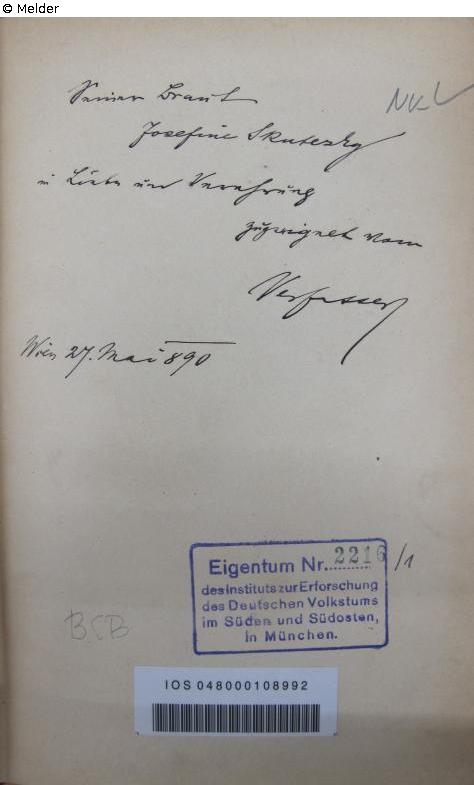 © Melder
Seiner Braut
NK
Josefine Skutezky
in Liebe und Verehrung
zugeeignet vom
Verfasser
Wien 27. Mai 890
Eigentum Nr. 2216/1
des Instituts zur Erforschung
des Deutschen Volkstums
im Süden und Südosten,
in München.
BSB
IOS 048000108992